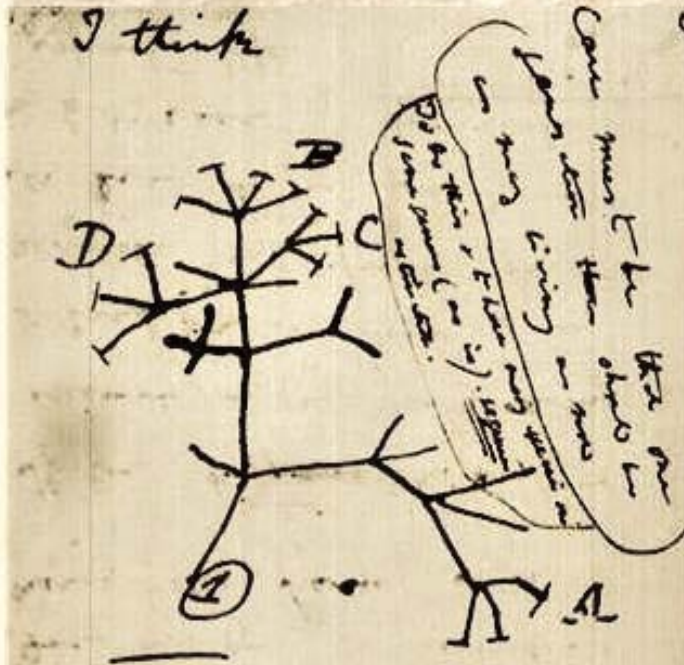 I think
B
D
C
Case must be that one
generation then should be
as many living as now
To do this & to have many species in
same genus (as is). requires
extinction.
1
A